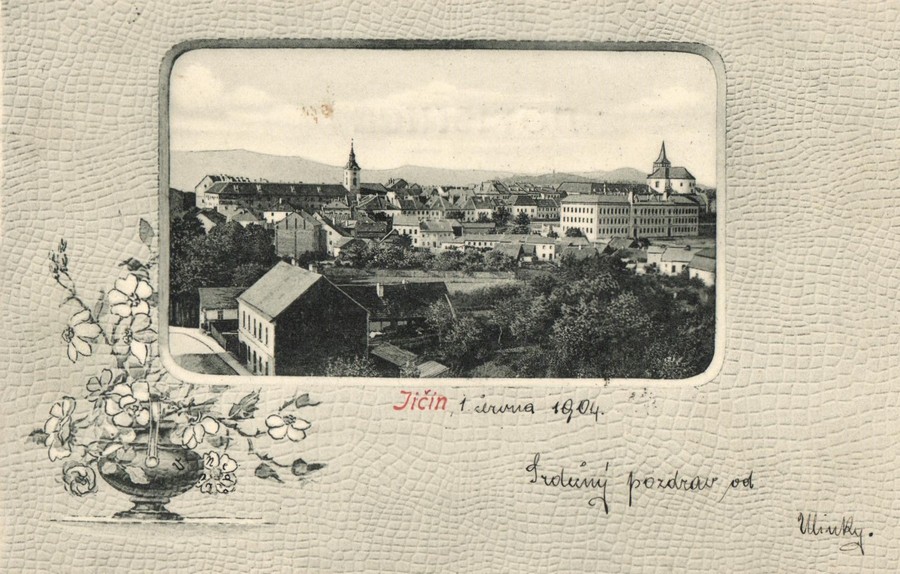 Jičín, 1 června 1904.
Srdečný pozdrav od
Ulinky.